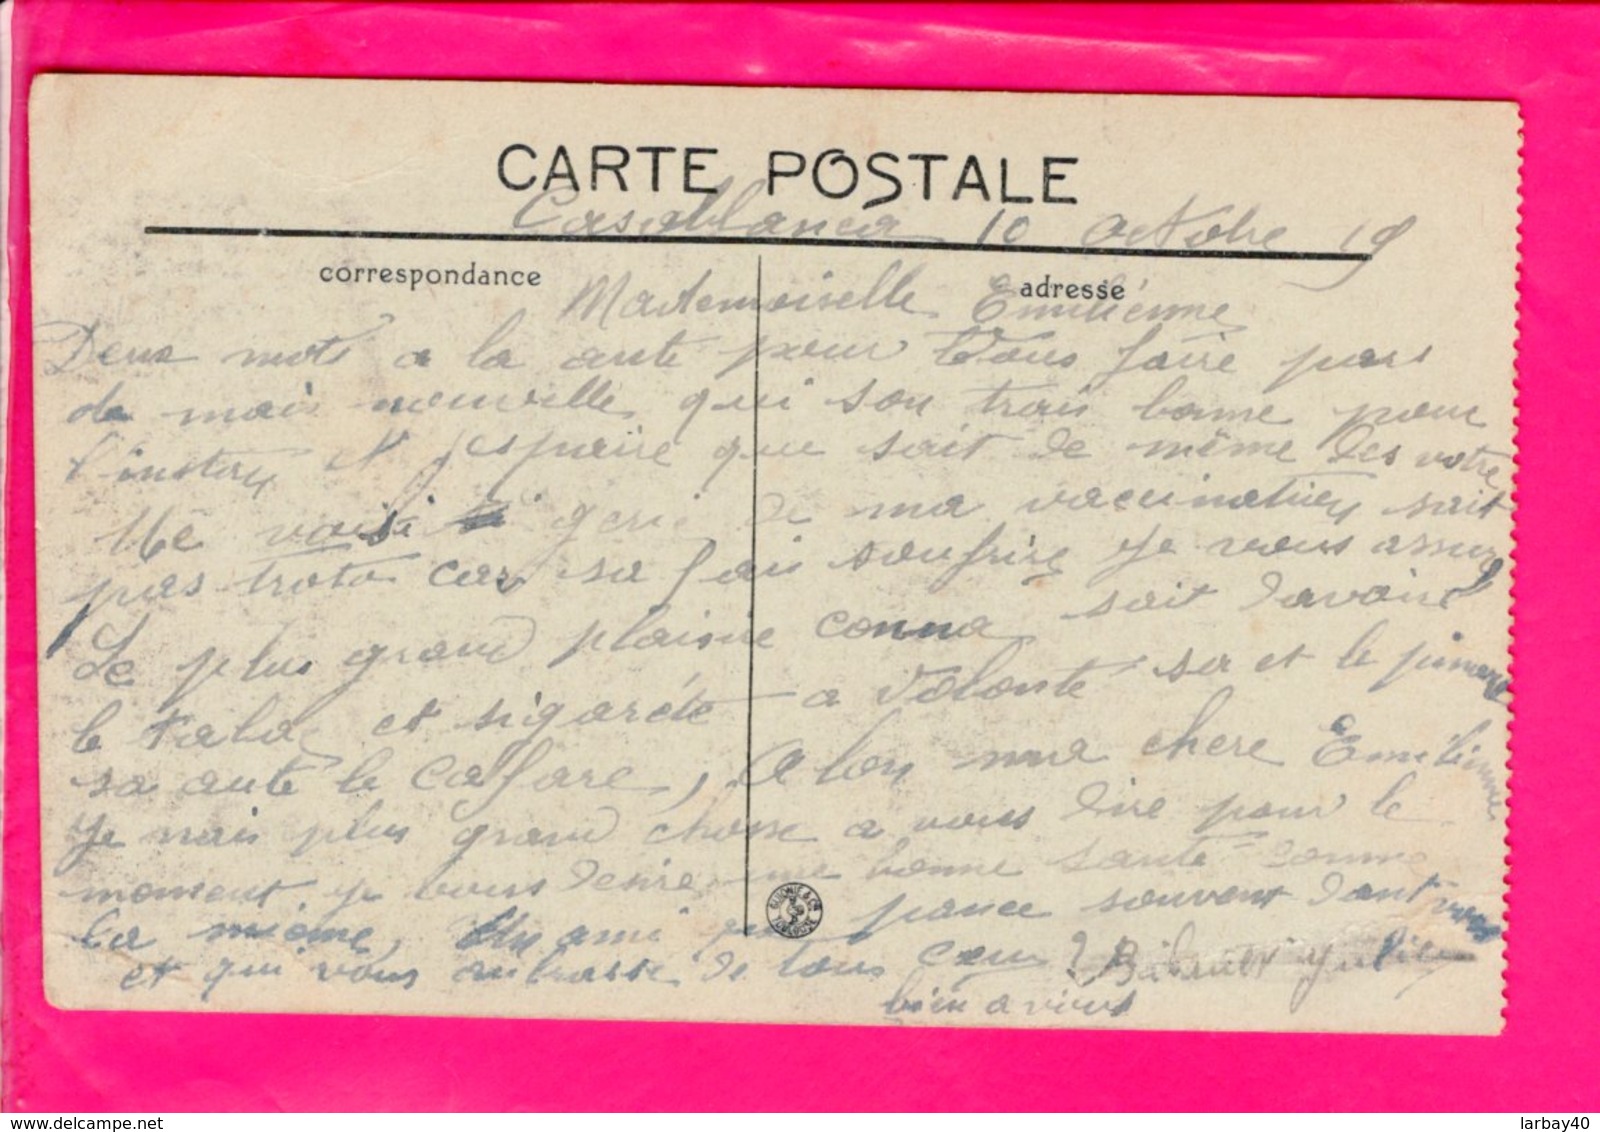 CARTE POSTALE
Casablanca 10 Octobre 19
correspondance
adresse
Mademoiselle Emilienne
Deux mots a la ante pour Vous faire pars
de mais nouvelle qui son trais bonne pour
l'instan et j'espaire que sait de même des votre
Mê voisi geri de ma vaccination sait
pas trotot car sa fais soufrire je vous assure
Le plus grand plaisire conna sait d'avoire
le tabac et sigarête a volonté sa et le
sa aute le Cafare, Alon ma chere Emilienne
Je nais plus grand chose a vous dire pour le
moment. je vous desire une bonne santé comme
la mienne, Un ami pance souvent dant vous
et qui vous anbrasse de tous cœur
bien a vous
TOULOUSE
larbay40